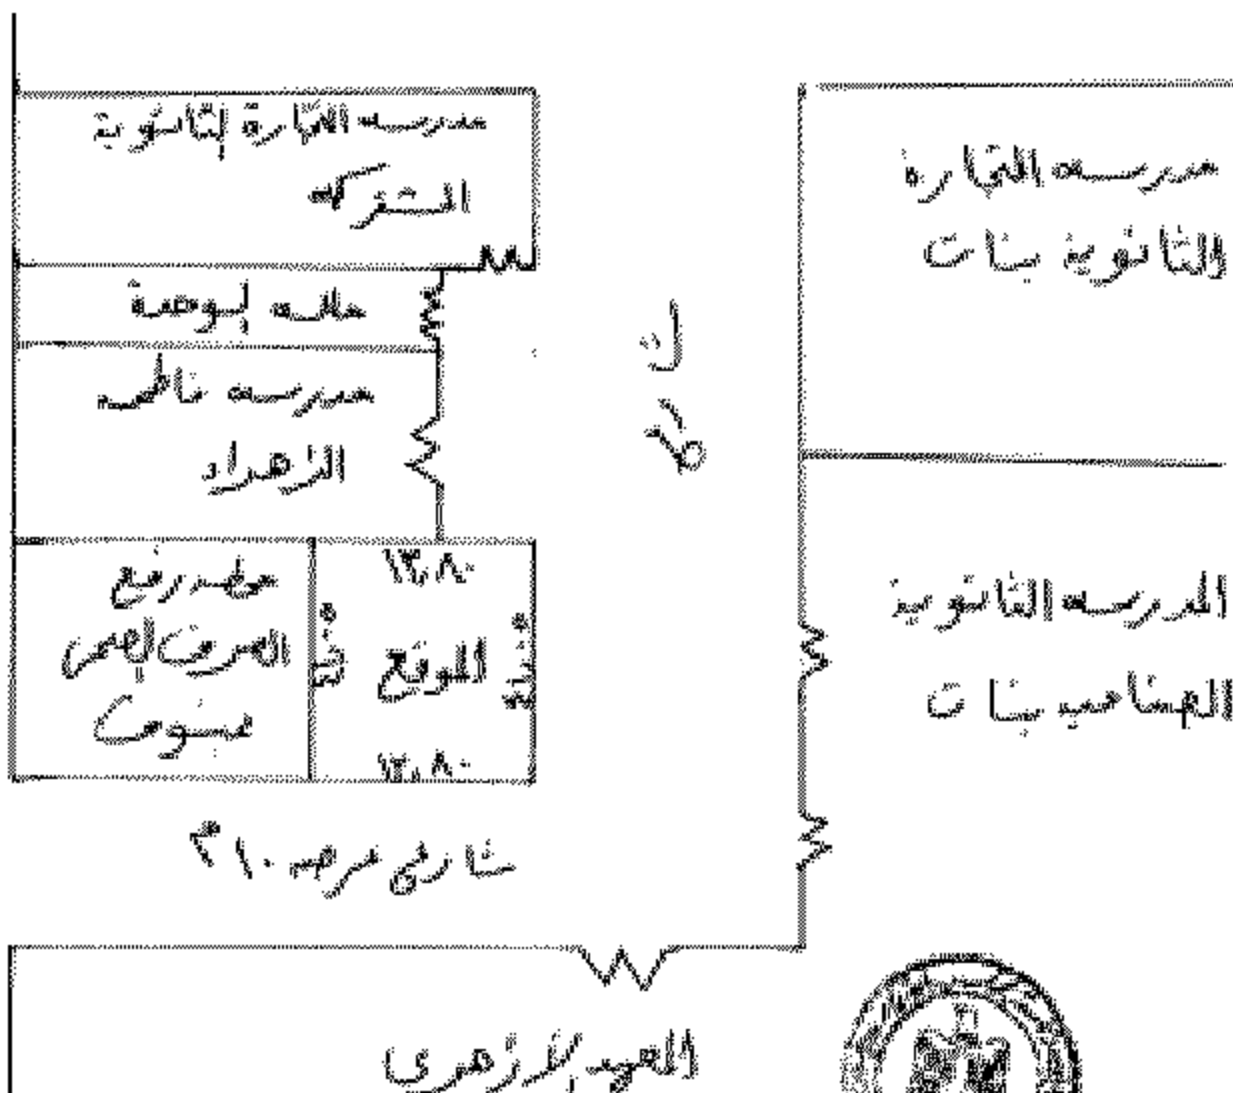 مدرسه التجارة الثانوية
المشتركه
مدرسه التجارة
الثانوية بنات
مدرسه فاطمه
الزهراء
محطه رفع
الصرف الصحى
١٣,٨٠
الموقع
١٣,٨٠
المدرسه الثانوية
الصناعيه بنات
شارع عرضه ١٠م
المعهد الازهرى